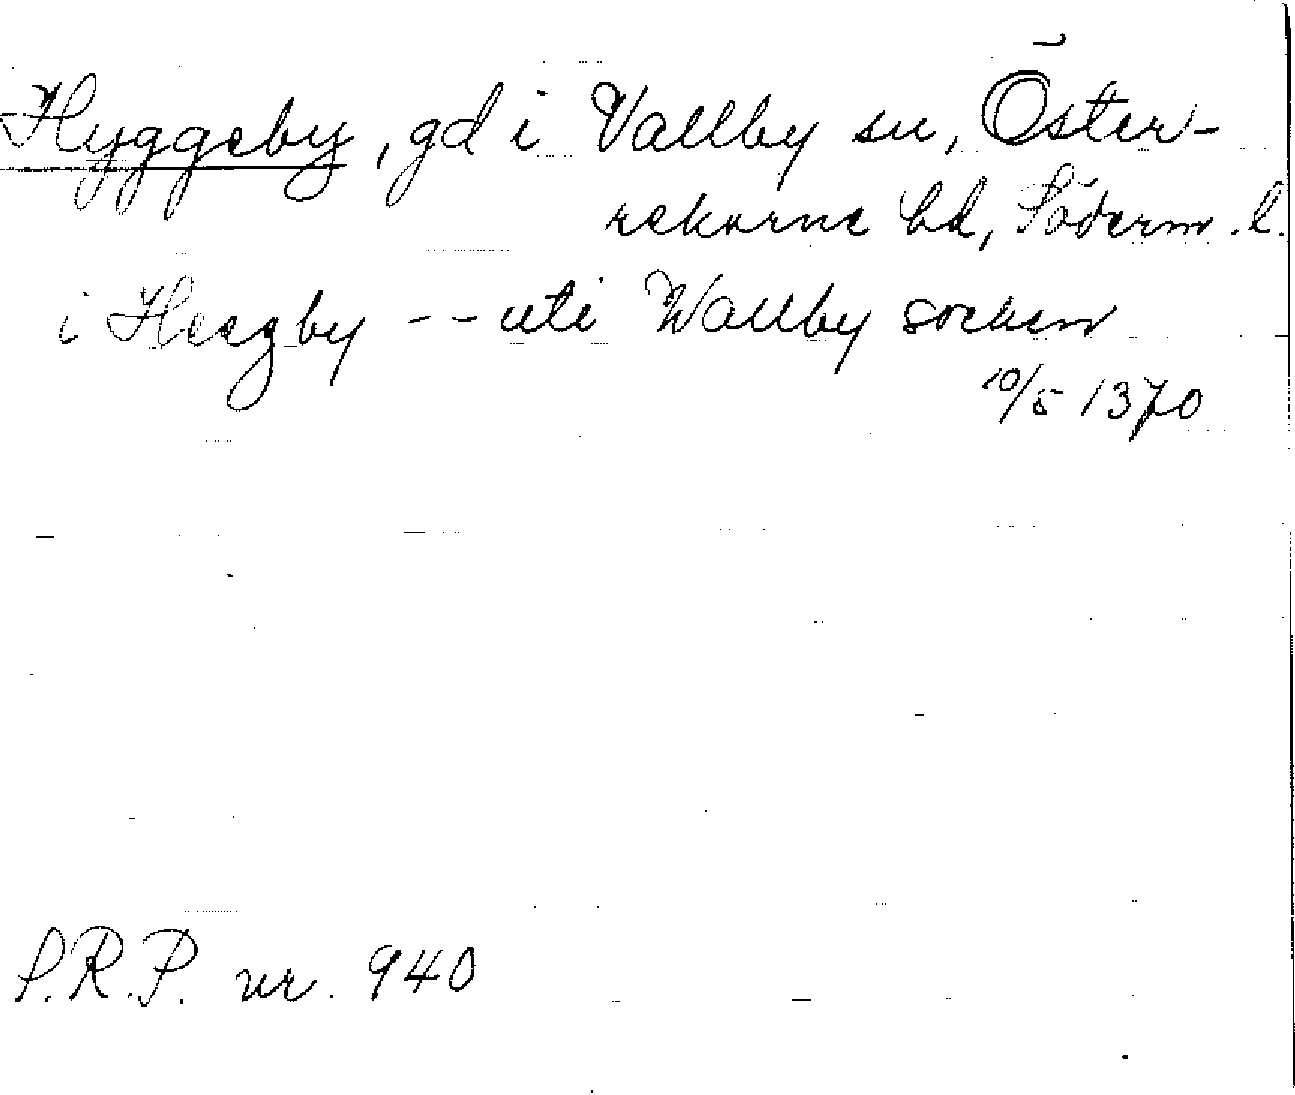 Hyggeby, gd i Vallby sn, Öster-
rekarne hd, Söderm. l.
i Hegby -- uti Wallby socken
10/5 1370
S.R.P. nr. 940